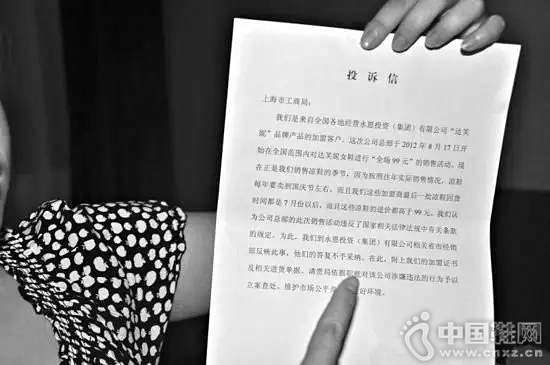 投 诉 信
上海市工商局：
我们是来自全国各地经营永恩投资（集团）有限公司“达芙
妮”品牌产品的加盟客户。这次公司总部于 2012 年 8 月 17 日开
始在全国范围内对达芙妮女鞋进行“全场 99 元”的销售活动。现
在正是我们销售凉鞋的季节，因为按照往年实际销售情况，凉鞋
每年要卖到国庆节左右。而且我们这些加盟商最后一批凉鞋回货
时间都是 7 月份以后，而且这些凉鞋的进价都高于 99 元。我们认
为公司总部的此次销售活动违反了国家相关法律法规中有关条款
的规定。为此，我们到永恩投资（集团）有限公司相关省市经销
部反映此事，他们的答复不予采纳。在此，附上我们的加盟证书
及相关进货单据。请贵局依据职能对该公司涉嫌违法的行为予以
立案查处。维护市场公平 好环境。
中国鞋网
www.cnxz.cn